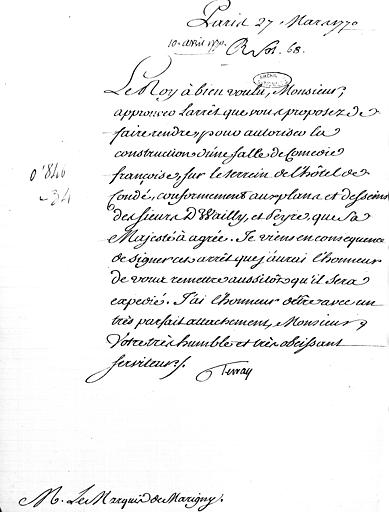 Paris 27 Mars 1770
10 avril 1770. R Sos. 68.
Le Roy à bien voulu, Monsieur,
approuver l'arrêt que vous proposez de
faire rendre pour autoriser la
construction d'une salle de Comedie
françoise, sur le terrein de l'hôtel de
Condé, conformement aux plans et desseins
des sieurs D'Wailly, et Peyre, que Sa
Majesté à agréé. Je viens en consequence
de signer cet arrêt que j'aurai l'honneur
de vous remettre aussitôt qu'il sera
expedié. J'ai l'honneur d'être avec un
très parfait attachement, Monsieur,
Votre très humble et très obeissant
serviteur.
Terray
O'846
-34
M. Le Marquis de Marigny.